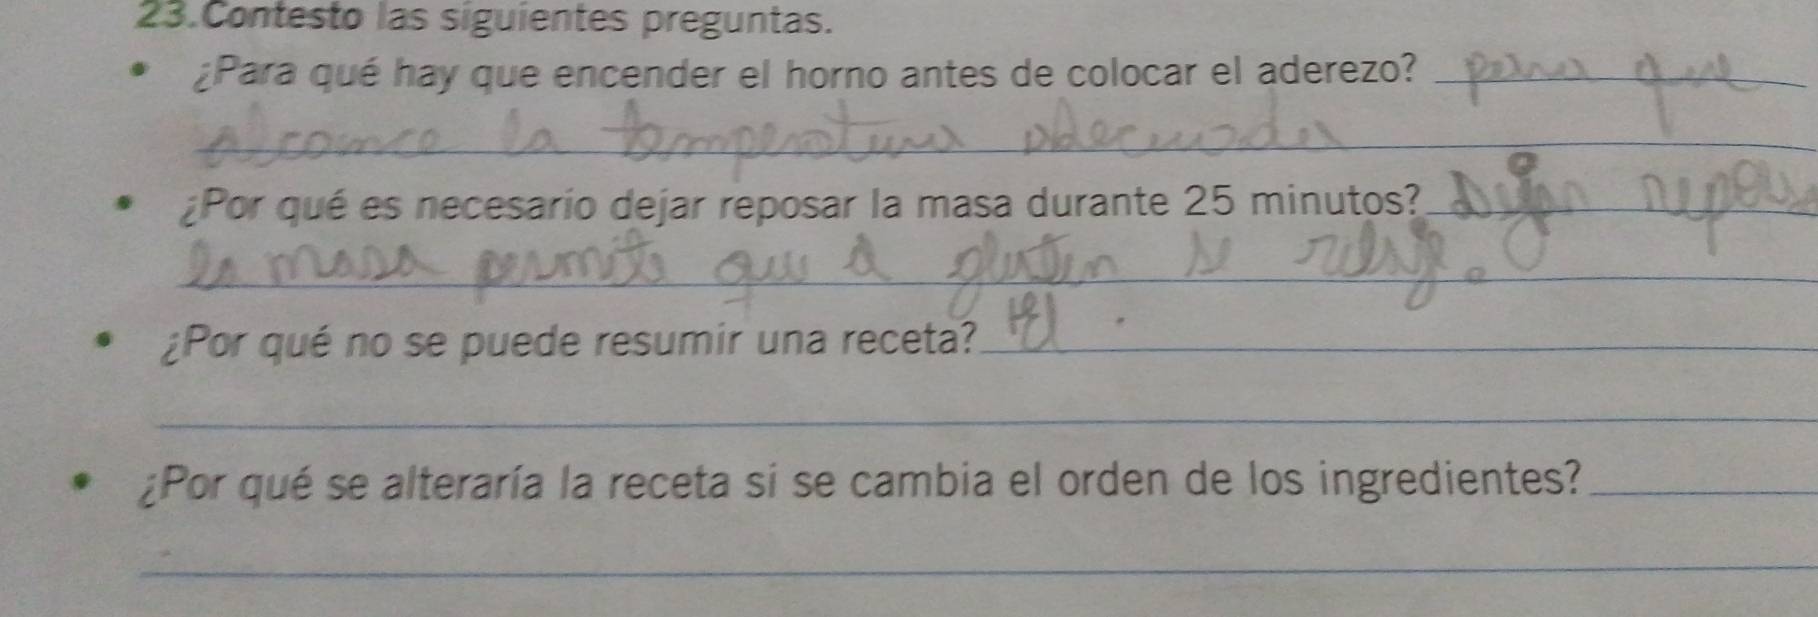 23. Contesto las siguientes preguntas.
• ¿Para qué hay que encender el horno antes de colocar el aderezo? para que
alcance la temperatura adecuada
• ¿Por qué es necesario dejar reposar la masa durante 25 minutos? Dejar repos
la masa permite que el gluten se relaje.
• ¿Por qué no se puede resumir una receta?
• ¿Por qué se alteraría la receta si se cambia el orden de los ingredientes?